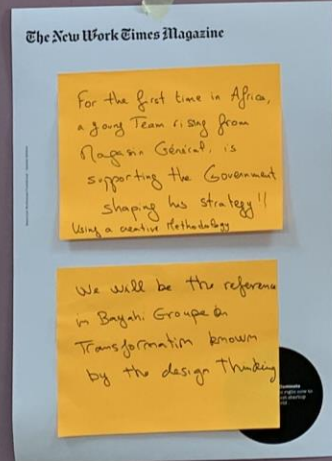 The New Work Times Magazine
For the first time in Africa,
a young Team rising from
Magasin Général, is
supporting the Government
shaping his strategy!!
Using a creative Methodology
We will be the reference
in Bayahi Groupe on
Transformation known
by the design Thinking